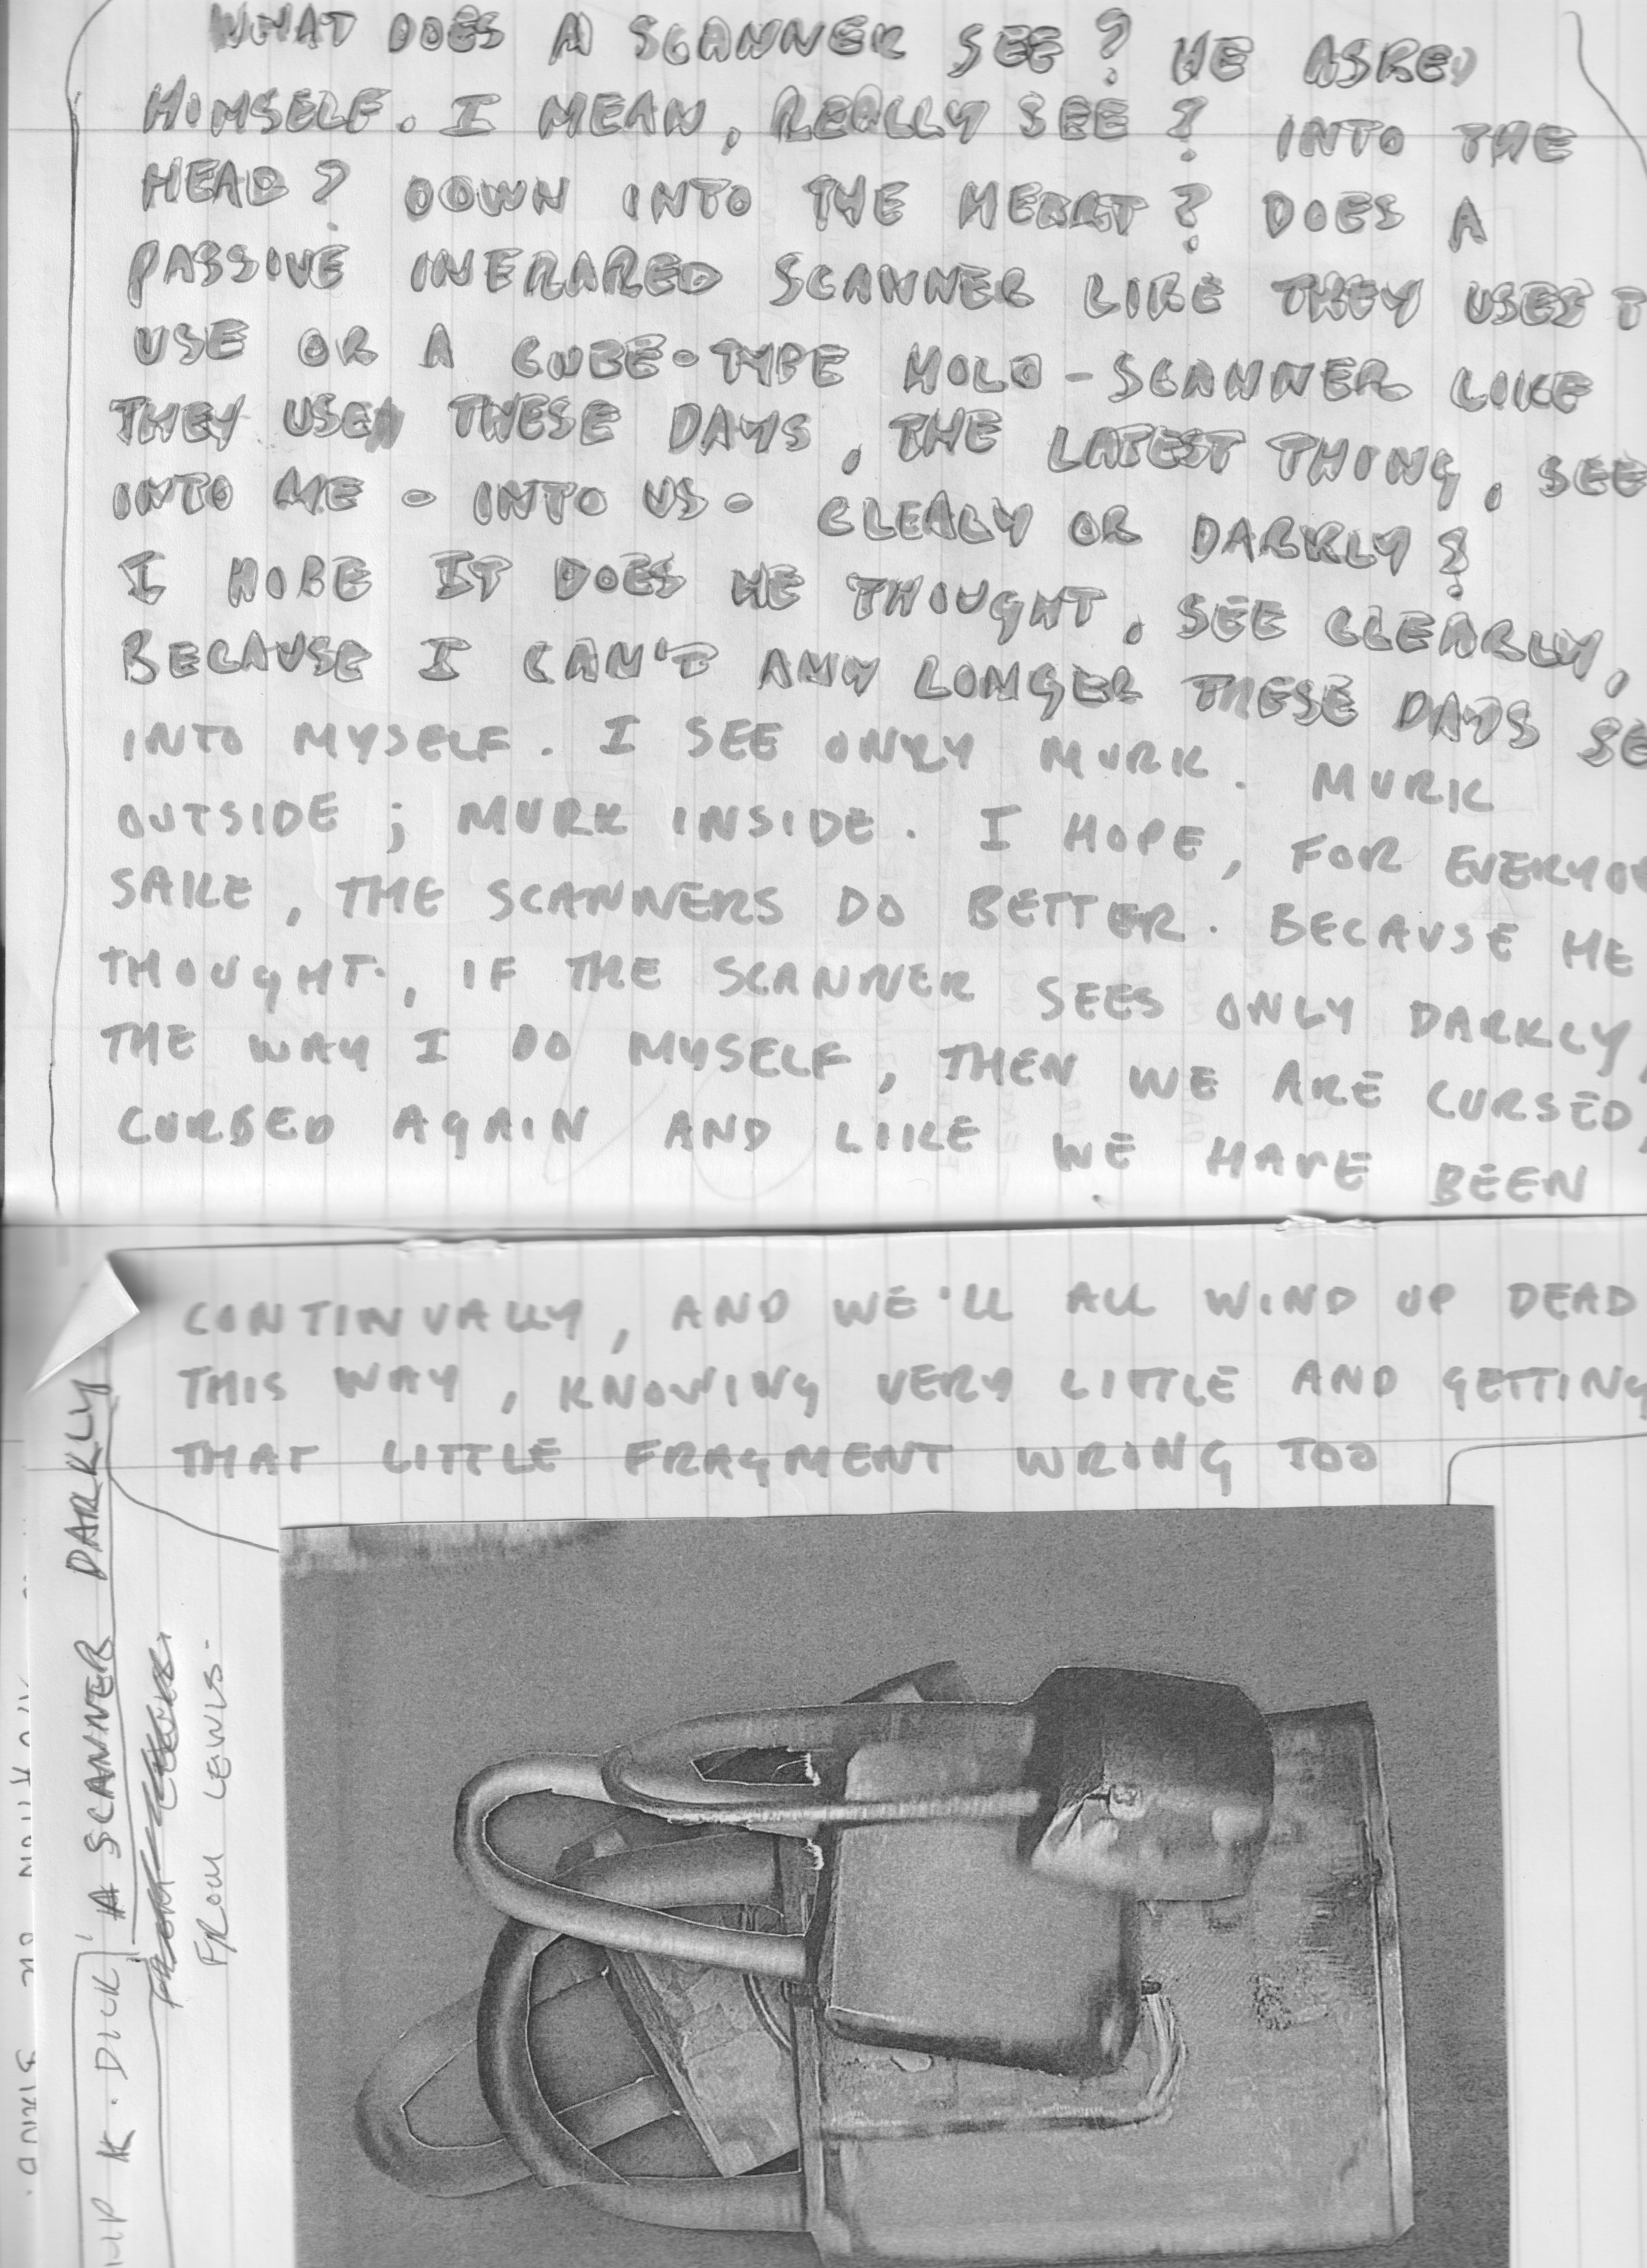 WHAT DOES A SCANNER SEE? HE ASKED
HIMSELF. I MEAN, REALLY SEE? INTO THE
HEAD? DOWN INTO THE HEART? DOES A
PASSIVE INFRARED SCANNER LIKE THEY USES T
USE OR A CUBE-TYPE HOLO-SCANNER LIKE
THEY USE THESE DAYS, THE LATEST THING, SEE
INTO ME - INTO US - CLEALY OR DARKLY?
I HOPE IT DOES HE THOUGHT, SEE CLEARLY,
BECAUSE I CAN'T ANY LONGER THESE DAYS SE
INTO MYSELF. I SEE ONLY MURK. MURK
OUTSIDE; MURK INSIDE. I HOPE, FOR EVERYO
SAKE, THE SCANNERS DO BETTER. BECAUSE HE
THOUGHT, IF THE SCANNER SEES ONLY DARKLY,
THE WAY I DO MYSELF, THEN WE ARE CURSED,
CURSED AGAIN AND LIKE WE HAVE BEEN
CONTINUALLY, AND WE'LL ALL WIND UP DEAD
THIS WAY, KNOWING VERY LITTLE AND GETTING
THAT LITTLE FRAGMENT WRONG TOO
K. DICK, A SCANNER DARKLY
FROM LEWIS.